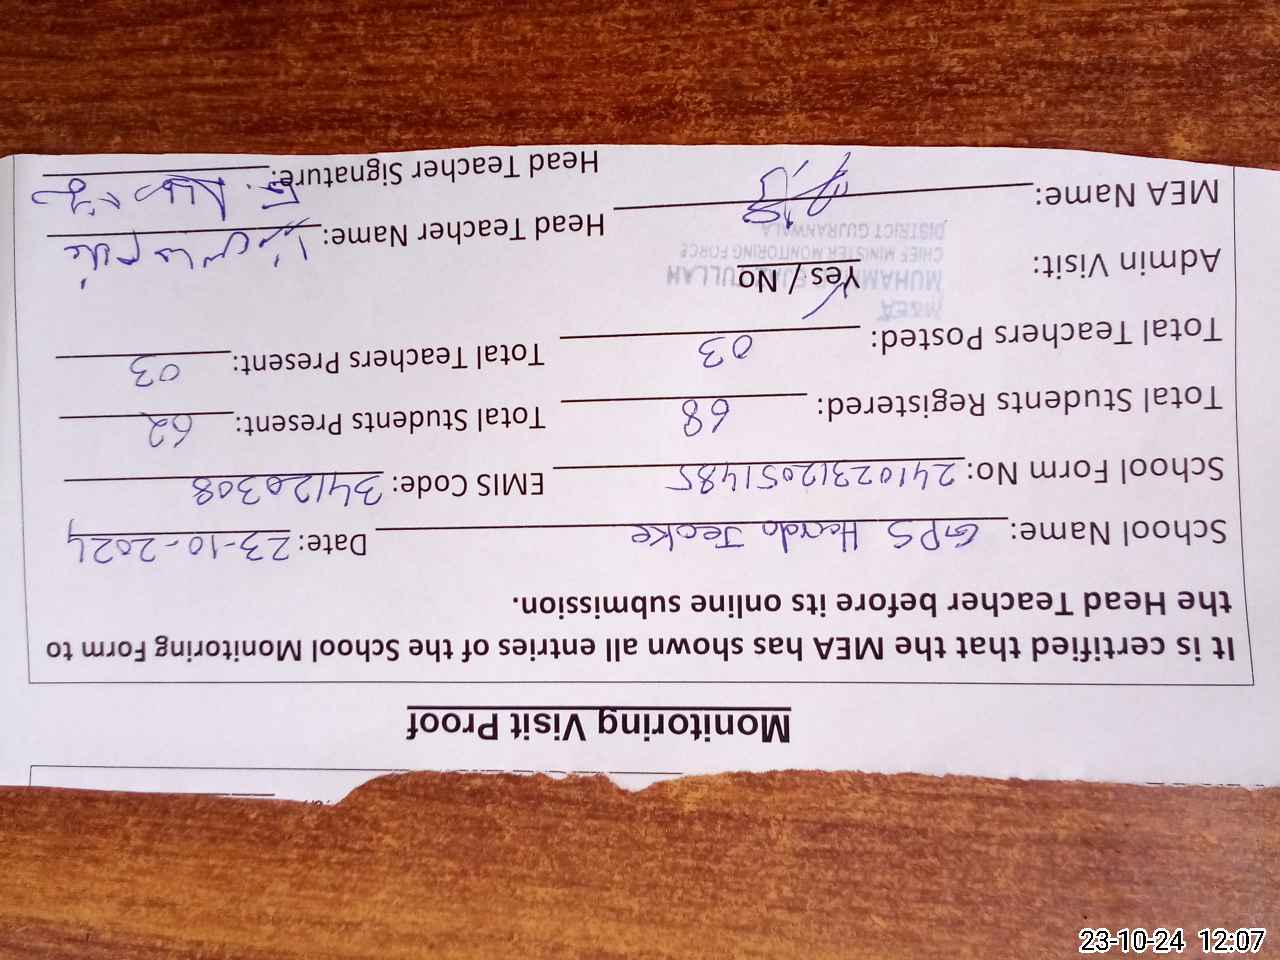 Monitoring Visit Proof
It is certified that the MEA has shown all entries of the School Monitoring Form to
the Head Teacher before its online submission.
School Name: GPS Harda Jeoke Date: 23-10-2024
School Form No: 24102312051485 EMIS Code: 34120308
Total Students Registered: 68 Total Students Present: 62
Total Teachers Posted: 03 Total Teachers Present: 03
Admin Visit: Yes / No
MEA
MUHAMMAD
CHIEF MINISTER MONITORING FORCE
DISTRICT GUJRANWALA
Head Teacher Name:
MEA Name:
Head Teacher Signature:
23-10-24 12:07